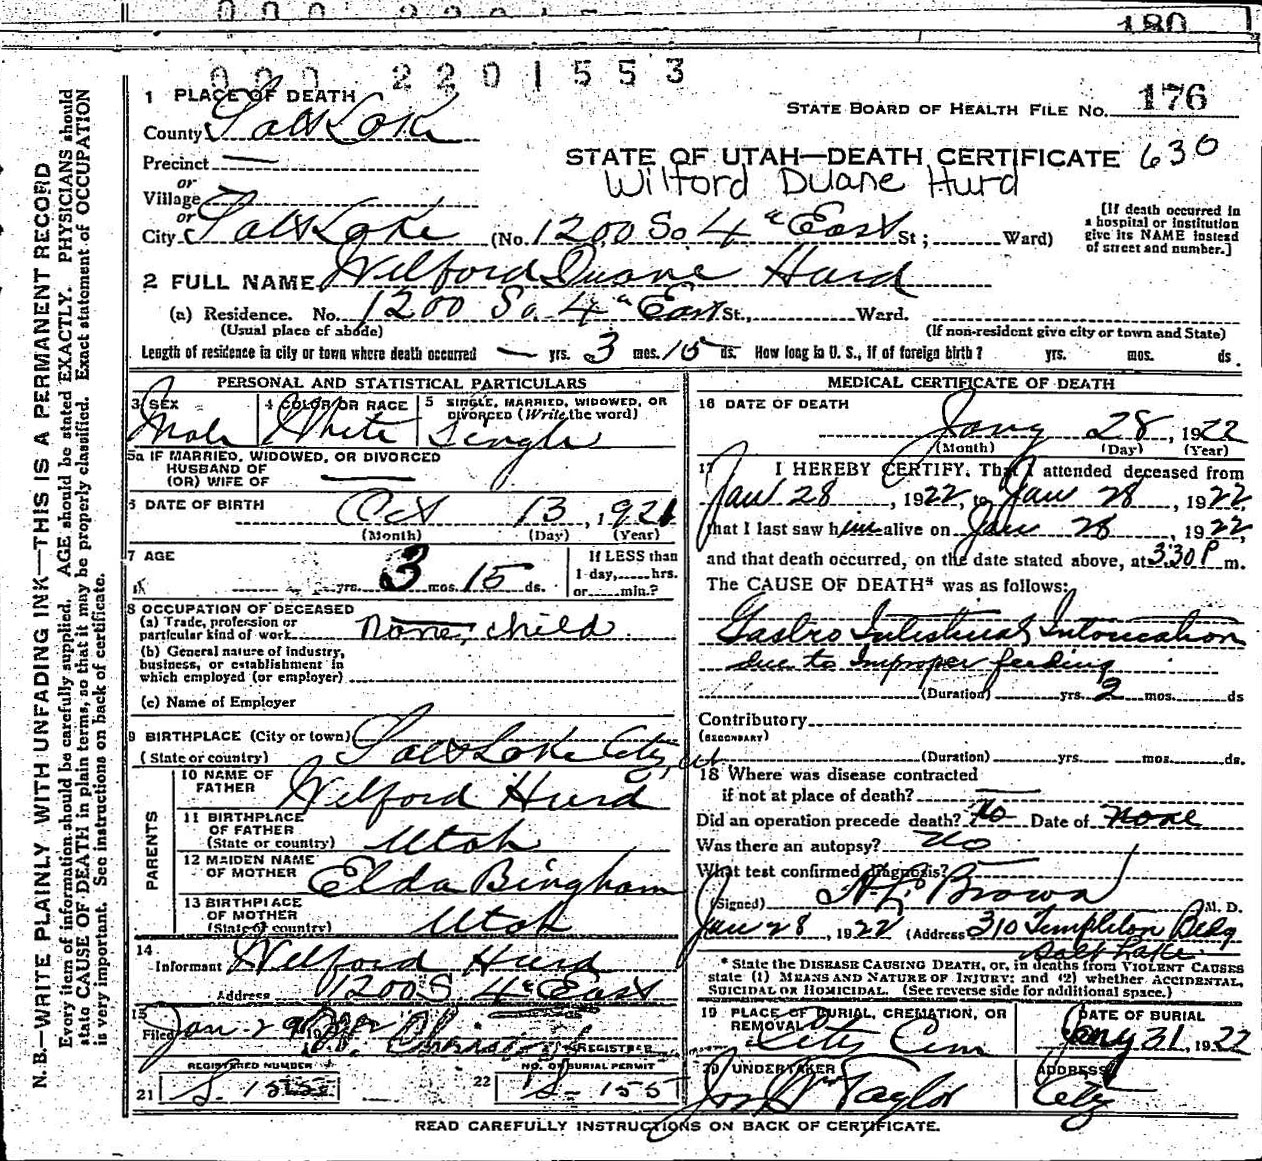 180
000 2201553
1 PLACE OF DEATH
STATE BOARD OF HEALTH FILE NO. 176
County Salt Lake
Precinct —
STATE OF UTAH—DEATH CERTIFICATE 630
or
Wilford Duane Hurd
Village
or
City Salt Lake (No. 1200 So 4" East St; Ward)
[If death occurred in
a hospital or institution
give its NAME instead
of street and number.]
2 FULL NAME Wilford Duane Hurd
(a) Residence. No. 1200 So. 4" East St., Ward.
(Usual place of abode)
(If non-resident give city or town and State)
Length of residence in city or town where death occurred — yrs. 3 mos. 15 ds. How long in U. S., if of foreign birth? yrs. mos. ds.
PERSONAL AND STATISTICAL PARTICULARS
3 SEX
Male
4 COLOR OR RACE
White
5 SINGLE, MARRIED, WIDOWED, OR
DIVORCED (Write the word)
Single
5a IF MARRIED, WIDOWED, OR DIVORCED
HUSBAND OF
(OR) WIFE OF —
6 DATE OF BIRTH Oct 13, 1921
(Month) (Day) (Year)
7 AGE
yrs. 3 mos. 15 ds.
If LESS than
1 day, hrs.
or min.?
8 OCCUPATION OF DECEASED
(a) Trade, profession or
particular kind of work None, child
(b) General nature of industry,
business, or establishment in
which employed (or employer)
(c) Name of Employer
9 BIRTHPLACE (City or town)
(State or country) Salt Lake City, ut.
PARENTS
10 NAME OF
FATHER Wilford Hurd
11 BIRTHPLACE
OF FATHER
(State or country) Utah
12 MAIDEN NAME
OF MOTHER Elda Bingham
13 BIRTHPLACE
OF MOTHER
(State of country) Utah
14
Informant Wilford Hurd
Address 1200 S 4" East
15
Filed Jan-29 19
REGISTRAR
REGISTERED NUMBER
21 S. 155
NO. OF BURIAL PERMIT
22 S-155
MEDICAL CERTIFICATE OF DEATH
16 DATE OF DEATH
Jany 28, 1922
(Month) (Day) (Year)
17 I HEREBY CERTIFY. That I attended deceased from
Jan 28, 1922, to Jan 28, 1922
that I last saw him alive on Jan 28, 1922,
and that death occurred, on the date stated above, at 3 30 P m.
The CAUSE OF DEATH* was as follows:
Gastro Intestinal Intoxication
due to Improper feeding
(Duration) yrs. 2 mos. ds
Contributory
(SECONDARY)
(Duration) yrs. mos. ds.
18 Where was disease contracted
if not at place of death? —
Did an operation precede death? No Date of none
Was there an autopsy? No
What test confirmed diagnosis? —
(Signed) H. L. Brown M. D.
Jan 28, 1922 (Address 310 Templeton Bldg
Salt Lake
* State the DISEASE CAUSING DEATH, or, in deaths from VIOLENT CAUSES
state (1) MEANS AND NATURE OF INJURY; and (2) whether ACCIDENTAL,
SUICIDAL OR HOMICIDAL. (See reverse side for additional space.)
19 PLACE OF BURIAL, CREMATION, OR
REMOVAL
City Cem
DATE OF BURIAL
Jany 31, 1922
20 UNDERTAKER
Jos Wm Taylor
ADDRESS
City
READ CAREFULLY INSTRUCTIONS ON BACK OF CERTIFICATE.
N. B.—WRITE PLAINLY WITH UNFADING INK—THIS IS A PERMANENT RECORD
Every item of information should be carefully supplied. AGE should be stated EXACTLY. PHYSICIANS should
state CAUSE OF DEATH in plain terms, so that it may be properly classified. Exact statement of OCCUPATION
is very important. See instructions on back of certificate.